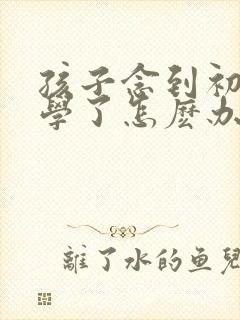 孩子念到初
學了怎麼办
離了水的鱼兒